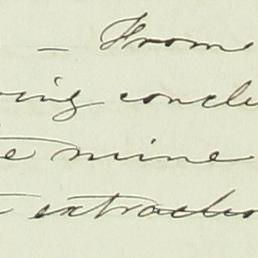 — From
ing conclu
e mine
extractio